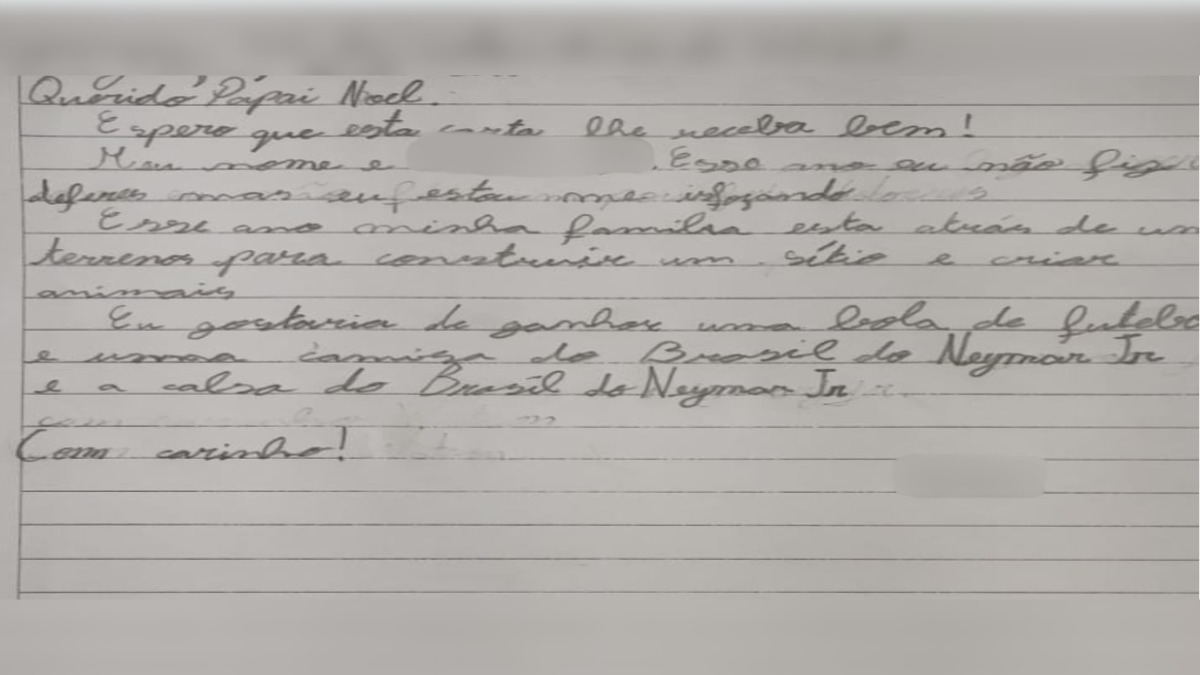 Querido Papai Noel.
Espero que esta carta lhe receba bem!
Meu nome e . Esse ano eu não fiz
mas eu estou me
Esse ano minha familia esta atrás de um
terrenos para construir um sítio e criar
animais
Eu gostaria de ganhar uma bola de futebo
e uma camiga do Brasil do Neymar Jr
e a calsa do Brasil do Neymar Jr
Com carinho!